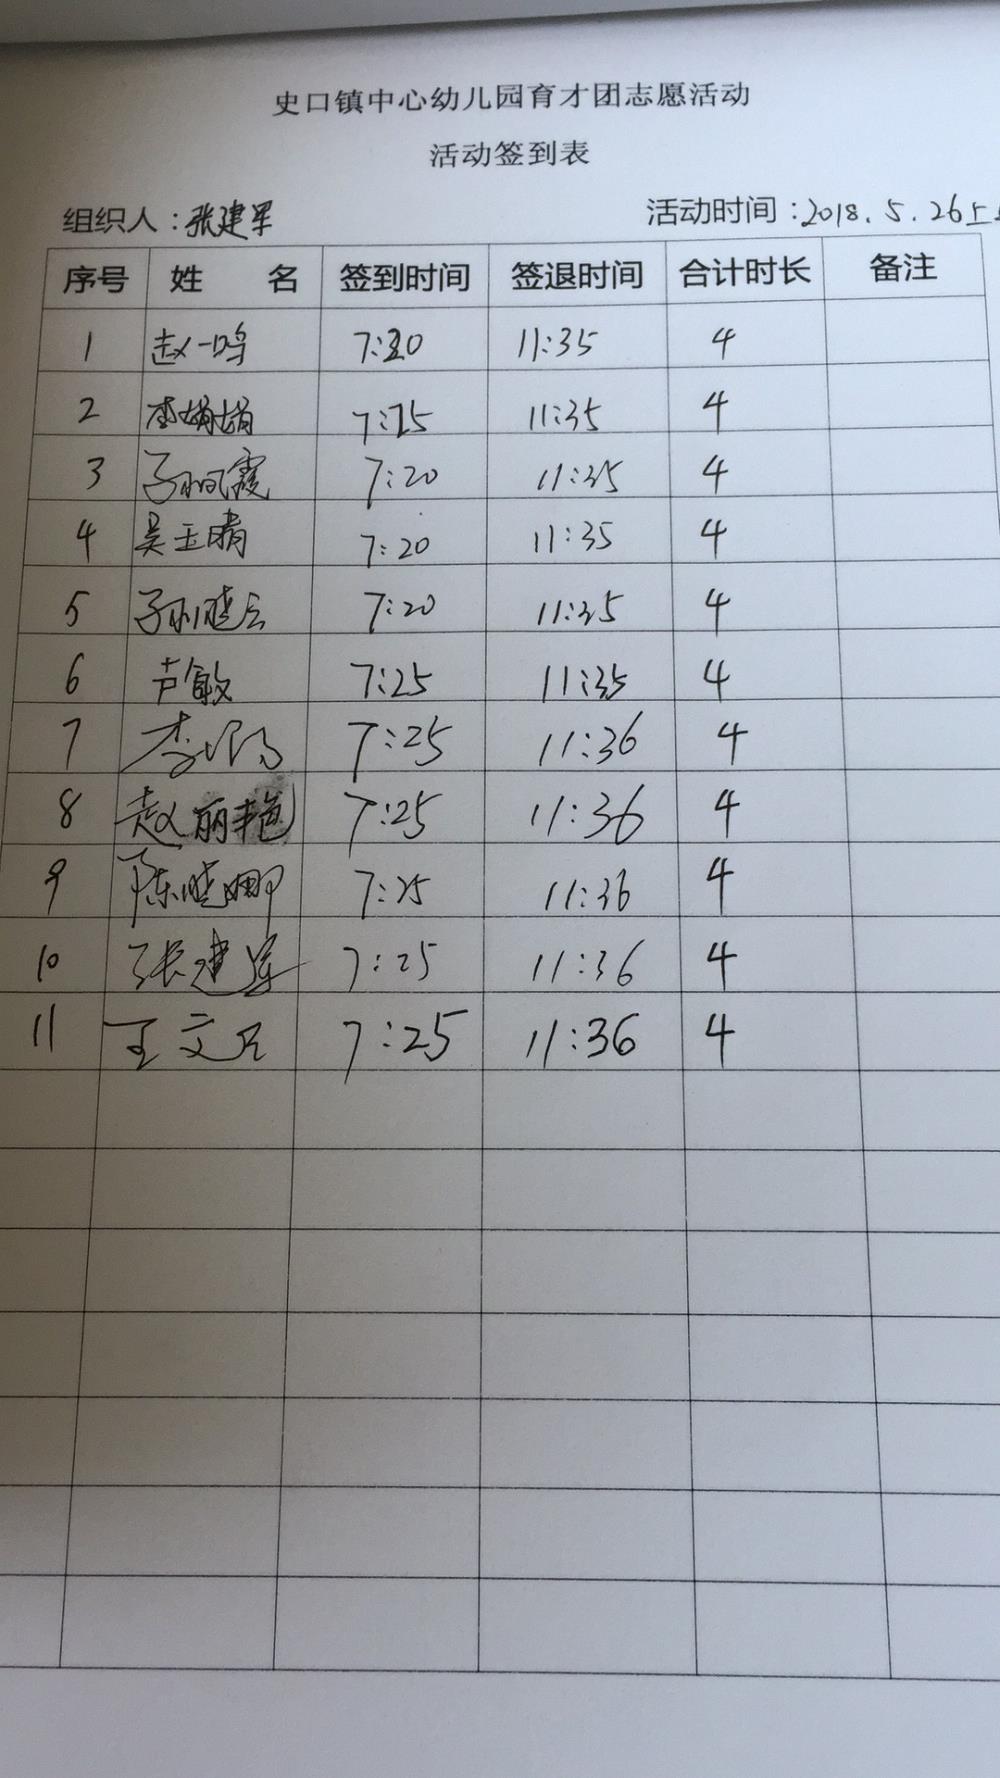 史口镇中心幼儿园育才团志愿活动
活动签到表
组织人：张建军 活动时间：2018.5.26上
序号 姓 名 签到时间 签退时间 合计时长 备注
1 赵一鸣 7:20 11:35 4
2 李娟娟 7:15 11:35 4
3 孙凤霞 7:20 11:35 4
4 吴玉晴 7:20 11:35 4
5 孙晓云 7:20 11:35 4
6 芦敏 7:25 11:35 4
7 李 7:25 11:36 4
8 赵丽艳 7:25 11:36 4
9 陈晓娜 7:25 11:36 4
10 张建军 7:25 11:36 4
11 王文 7:25 11:36 4